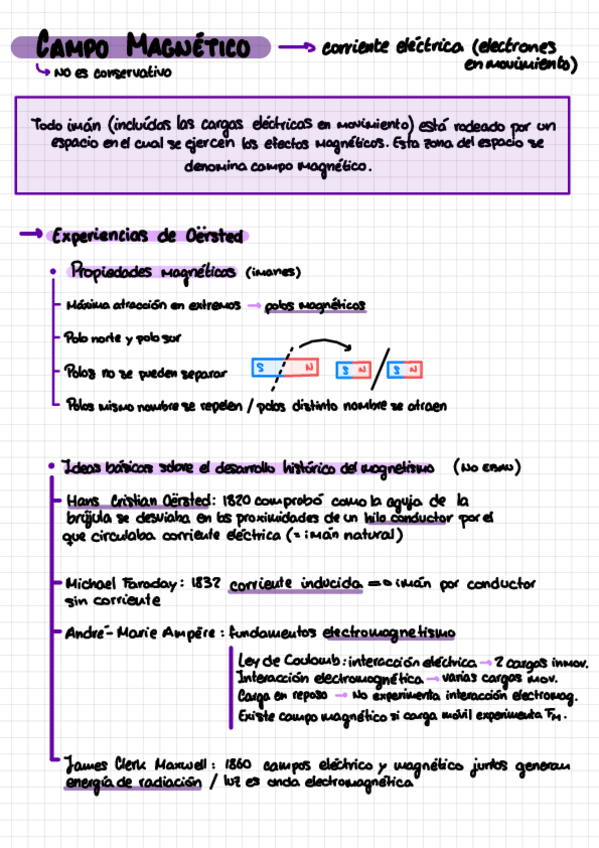 CAMPO MAGNÉTICO → corriente eléctrica (electrones
en movimiento)
↳ NO es conservativo
Todo imán (incluídas las cargas eléctricas en movimiento) está rodeado por un
espacio en el cual se ejercen los efectos magnéticos. Esta zona del espacio se
denomina campo magnético.
→ Experiencias de Oërsted
• Propiedades magnéticas (imanes)
Máxima atracción en extremos → polos magnéticos
Polo norte y polo sur
Polos no se pueden separar S N S N / S N
Polos mismo nombre se repelen / polos distinto nombre se atraen
• Ideas básicas sobre el desarrollo histórico del magnetismo (NO EBAU)
Hans Cristian Oërsted: 1820 comprobó como la aguja de la
brújula se desviaba en las proximidades de un hilo conductor por el
que circulaba corriente eléctrica (= imán natural)
Michael Faraday: 1832 corriente inducida ⇒ imán por conductor
sin corriente
André-Marie Ampère: fundamentos electromagnetismo
Ley de Coulomb: interacción eléctrica → 2 cargas inmov.
Interacción electromagnética → varias cargas mov.
Carga en reposo → No experimenta interacción electromag.
Existe campo magnético si carga móvil experimenta FM.
James Clerk Maxwell: 1860 campos eléctrico y magnético juntos generan
energía de radiación / luz es onda electromagnética